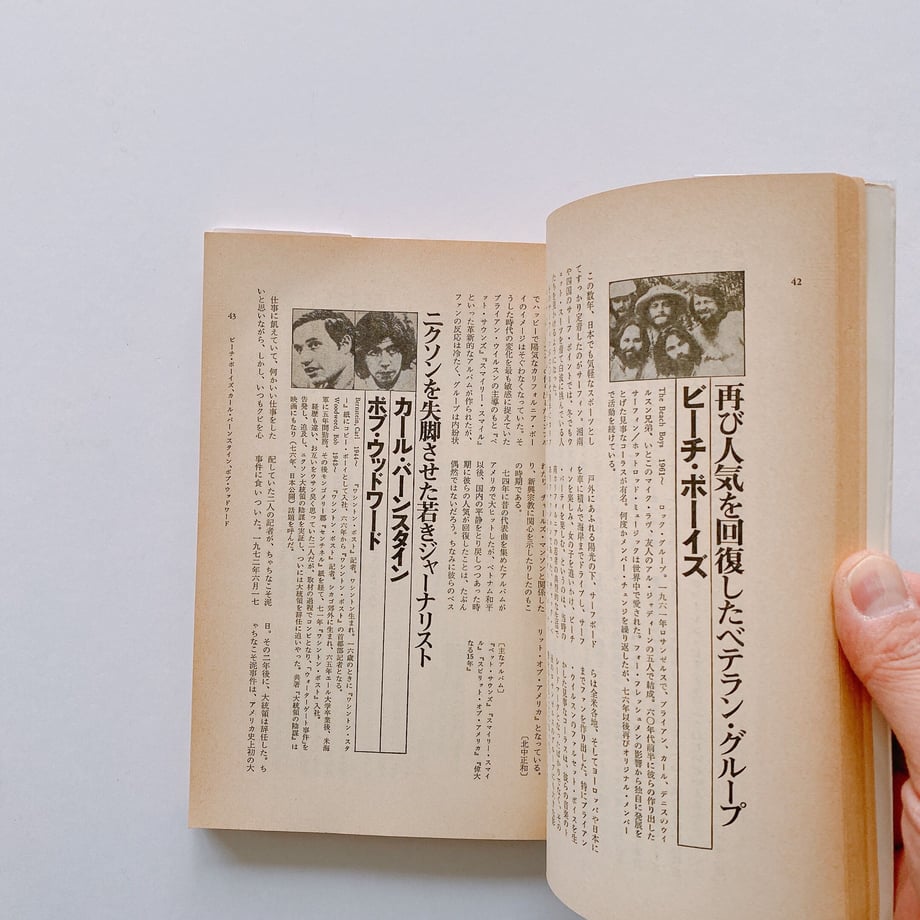 42
再び人気を回復したベテラン・グループ
ビーチ・ボーイズ
The Beach Boys 1961〜 ロック・グループ。一九六一年ロサンゼルスで、ブライアン、カール、デニスのウィ
ルスン兄弟、いとこのマイク・ラヴ、友人のアル・ジャディーンの五人で結成。六〇年代前半に彼らの作り出した
サーフィン/ホットロッド・ミュージックは世界中で愛された。フォー・フレッシュメンの影響から独自に発展を
とげた見事なコーラスが有名。何度かメンバー・チェンジを繰り返したが、七六年以後再びオリジナル・メンバー
で活動を続けている。
この数年、日本でも気軽なスポーツとし
てすっかり定着したのがサーフィン。湘南
や四国のサーフ・ポイントでは、冬でもウ
戸外にあふれる陽光の下、サーフボード
を車に積んで海岸までドライブし、サーフ
ィンを楽しみ、女の子を追いかけ、ビーチ
らは全米各地、そしてヨーロッパや日本に
までファンを作り出した。特にブライアン
・ウイルスンのファルセット・ボイスを生
でハッピーで陽気なカリフォルニア・ボー
イのイメージはそぐわなくなっていた。そ
うした時代の変化を最も敏感に捉えていた
ブライアン・ウイルスンの主導のもと『ペ
ット・サウンズ』『スマイリー・スマイル』
といった革新的なアルバムが作られたが、
ファンの反応は冷たく、グループは内紛状
り、新興宗教に関心を示したりしたのもこ
の時期である。
七四年に昔の代表曲を集めたアルバムが
アメリカで大ヒットしたが、ベトナム和平
以後、国内の平静をとり戻しつつあった時
期に彼らの人気が回復したことは、たぶん
偶然ではないだろう。ちなみに彼らのベス
リット・オブ・アメリカ』となっている。
〔北中正和〕
〔主なアルバム〕
『ペット・サウンズ』『スマイリー・スマイ
ル』『スピリット・オブ・アメリカ』『偉大
なる15年』
ニクソンを失脚させた若きジャーナリスト
カール・バーンスタイン
ボブ・ウッドワード
Bernstein, Carl 1944〜 『ワシントン・ポスト』記者。ワシントン生まれ。一六歳のときに『ワシントン・スタ
ー』紙にコピー・ボーイとして入社、六六年から『ワシントン・ポスト』の首都部記者となる。
Woodward, Bob 1943〜 『ワシントン・ポスト』記者。シカゴ郊外に生まれ、六五年エール大学卒業後、米海
軍に五年間勤務、その後モンゴメリー郡『センチネル』紙を経て、七一年『ワシントン・ポスト』入社。
経歴も違い、お互いをウサン臭く思っていた二人だが、取材の過程でコンビとなり、「ウォーターゲート事件」を
告発し、追及し、ニクソン大統領の陰謀を実証し、ついには大統領を辞任に追いやった。共著『大統領の陰謀』は
映画にもなり(七六年、日本公開)話題を呼んだ。
仕事に飢えていて、何かいい仕事をした
いと思いながら、しかし、いつもクビを心
配していた二人の記者が、ちゃちなこそ泥
事件に食いついた。一九七二年六月一七
日。その二年後に、大統領は辞任した。ち
ゃちなこそ泥事件は、アメリカ史上初の大
43
ビーチ・ボーイズ、カール・バーンスタイン、ボブ・ウッドワード